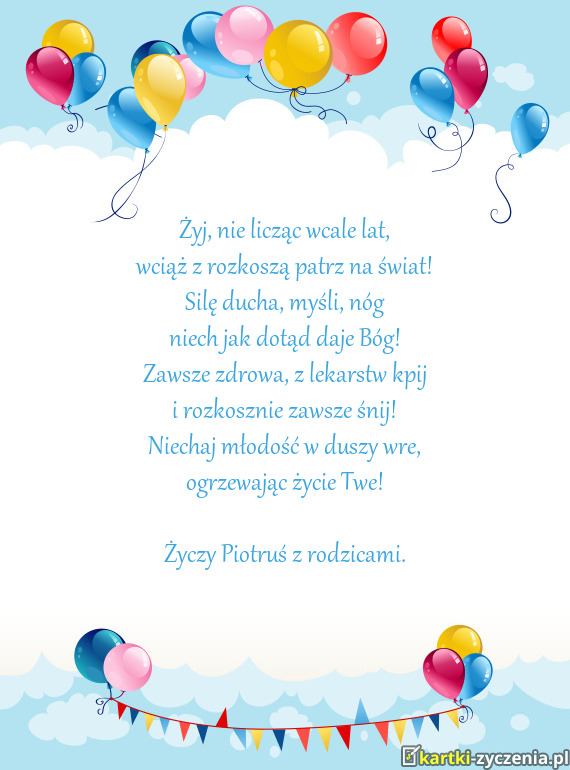 Żyj, nie licząc wcale lat,
wciąż z rozkoszą patrz na świat!
Silę ducha, myśli, nóg
niech jak dotąd daje Bóg!
Zawsze zdrowa, z lekarstw kpij
i rozkosznie zawsze śnij!
Niechaj młodość w duszy wre,
ogrzewając życie Twe!
Życzy Piotruś z rodzicami.
kartki-zyczenia.pl